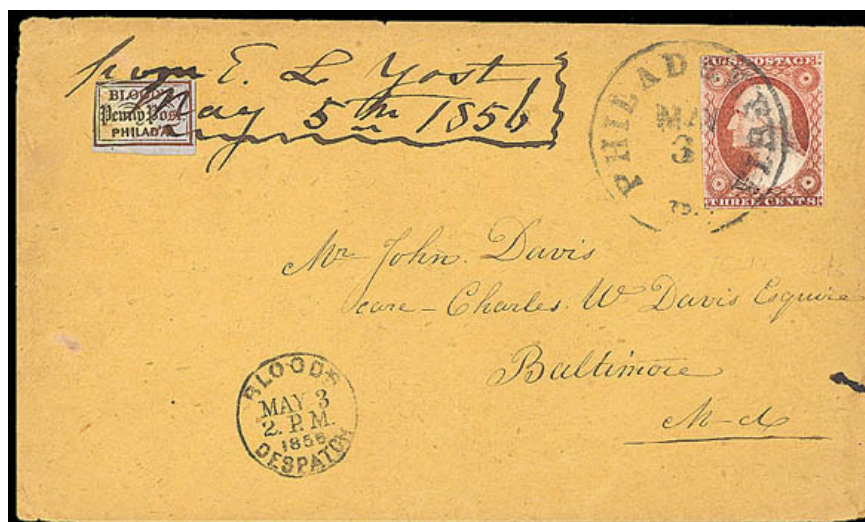 from E. L. Yost
May 5th 1856
BLOOD'S
Penny Post
PHILADA
PHILADE
MAY
3
U.S. POSTAGE
THREE CENTS
Mr John. Davis
care - Charles. W Davis Esquire
Baltimore
M-d
BLOOD'S
MAY 3
2. P.M.
1856
DESPATCH